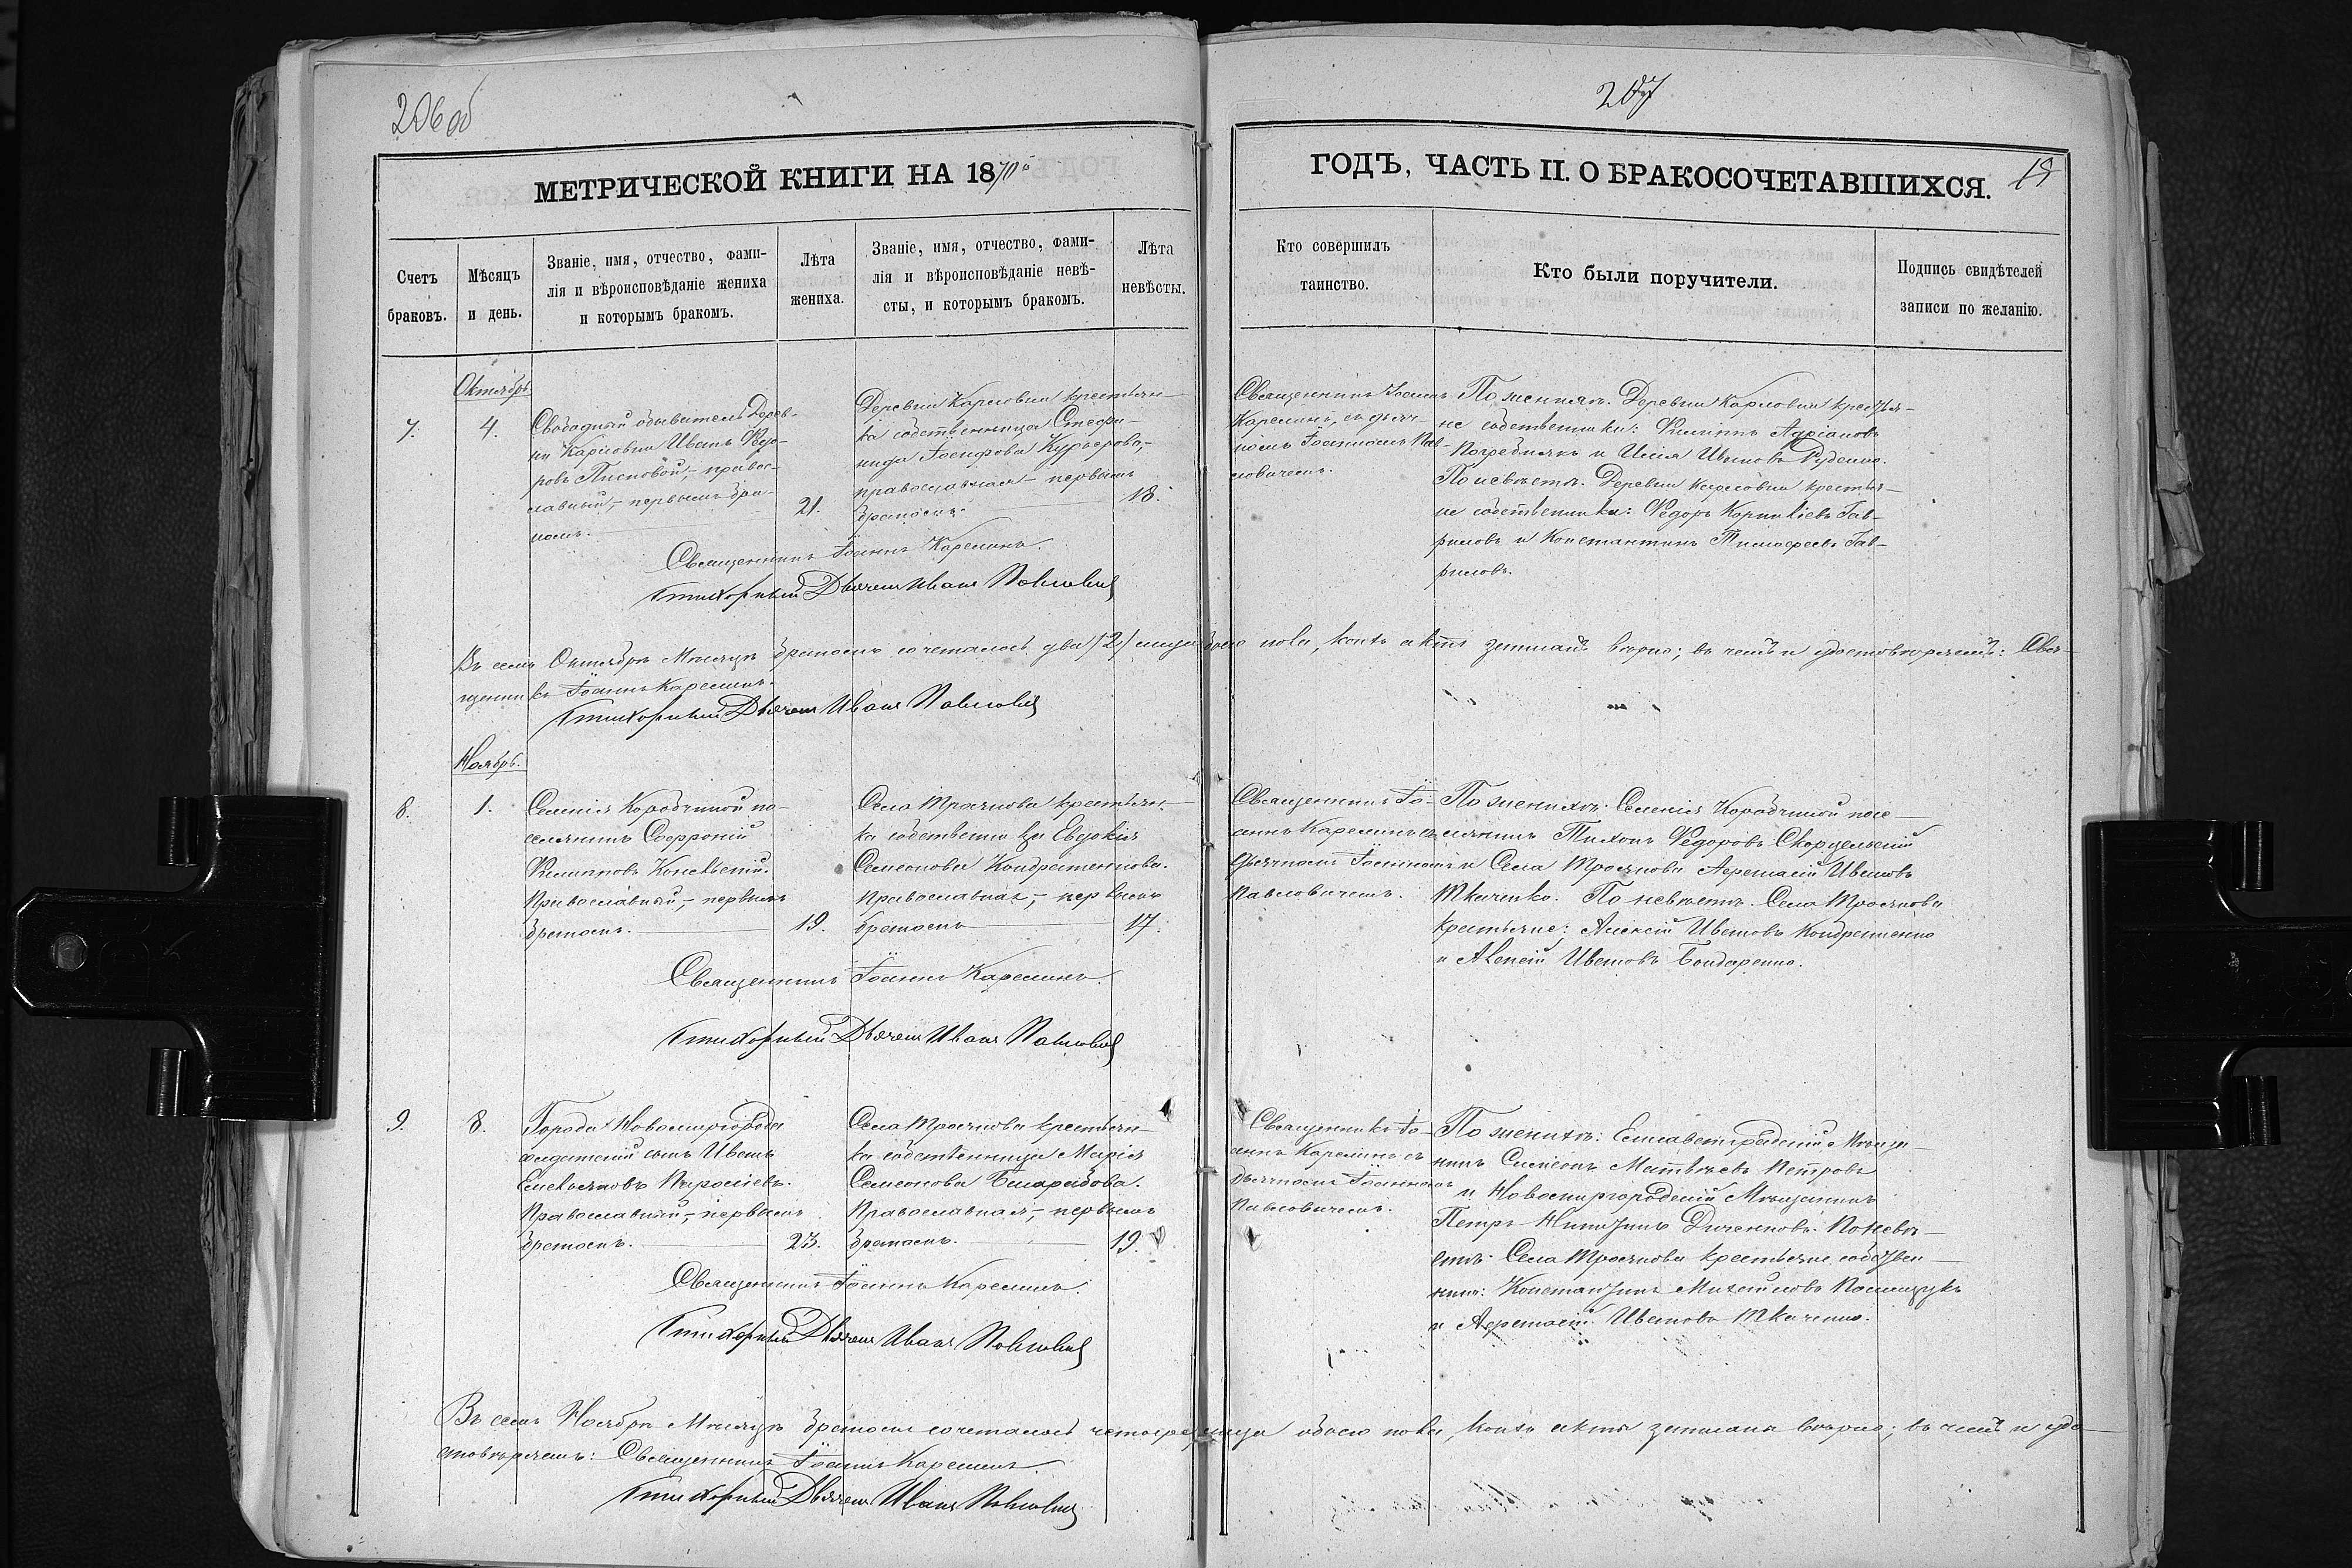 206 об
207
МЕТРИЧЕСКОЙ КНИГИ НА 1870й
ГОДЪ, ЧАСТЬ II. О БРАКОСОЧЕТАВШИХСЯ.
19
Счетъ
браковъ.
Мѣсяцъ
и день.
Званіе, имя, отчество, фами-
лія и вѣроисповѣданіе жениха
и которымъ бракомъ.
Лѣта
жениха.
Званіе, имя, отчество, фами-
лія и вѣроисповѣданіе невѣ-
сты, и которымъ бракомъ.
Лѣта
невѣсты.
Кто совершилъ
таинство.
Кто были поручители.
Подпись свидѣтелей
записи по желанію.
Октябрь
7.
4.
Свободный обыватель Дерев-
ни Карловки Иванъ Ѳедо-
ровъ православ-
славный, первымъ бра-
комъ.
21.
Деревни Карловки крестьян-
ка собственница Стефа-
нида Іосифова
православная первымъ
бракомъ.
18.
Священникъ Іоаннъ
Карелинъ, съ дьяч-
комъ Іоанномъ Пав-
ловичемъ.
По женихѣ. Деревни Карловки крестья-
не собственники: Филиппъ Адріановъ
Погребнякъ и Илія Ивановъ Руденко.
По невѣстѣ. Деревни Карловки крестья-
не собственники: Ѳедоръ Корниліевъ Гав-
риловъ и Константинъ Тимофеевъ Гав-
риловъ.
Священникъ Іоаннъ Карелинъ.
Стихарный Дьячекъ Иванъ Павловичъ
Въ семъ Октябрѣ Мѣсяцѣ бракомъ сочеталось два /2/ лица обоего пола, коихъ акты записаны вѣрно; въ чемъ и удостовѣряемъ: Свя-
щенникъ Іоаннъ Карелинъ.
Стихарный Дьячекъ Иванъ Павловичъ
Ноябрь.
8.
1.
Селенія Коробчиной по-
селянинъ Софроній
Филипповъ
Православный, первымъ
бракомъ.
19.
Села Троянова крестьян-
ка собственница Евдокія
Семеонова Кондратенкова.
Православная, первымъ
бракомъ
17.
Священникъ Іо-
аннъ Карелинъ съ
дьячкомъ Іоанномъ
Павловичемъ.
По женихѣ. Селенія Коробчиной посе-
лянинъ Тихонъ Ѳедоровъ
и Села Троянова Ивановъ
Ткаченко. По невѣстѣ. Села Троянова
крестьяне: Алексій Ивановъ Кондратенко
и Алексій Ивановъ Бондаренко.
Священникъ Іоаннъ Карелинъ.
Стихарный Дьячекъ Иванъ Павловичъ
9.
8.
Города Новомиргорода
солдатскій сынъ Иванъ
Емельяновъ
Православный, первымъ
бракомъ.
23.
Села Троянова крестьян-
ка собственница Марія
Семеонова
Православная, первымъ
бракомъ.
19.
Священникъ Іо-
аннъ Карелинъ съ
дьячкомъ Іоанномъ
Павловичемъ.
По женихѣ: Елисаветградскій Мѣща-
нинъ Симеонъ Матвѣевъ Петровъ
и Новомиргородскій Мѣщанинъ
Петръ Никитинъ По невѣ-
стѣ: Села Троянова крестьяне собствен-
ники: Константинъ Михайловъ
и Ивановъ Ткаченко.
Священникъ Іоаннъ Карелинъ.
Стихарный Дьячекъ Иванъ Павловичъ
Въ семъ Ноябрѣ Мѣсяцѣ бракомъ сочеталось четыре лица обоего пола, коихъ акты записаны вѣрно; въ чемъ и удо-
стовѣряемъ: Священникъ Іоаннъ Карелинъ.
Стихарный Дьячекъ Иванъ Павловичъ